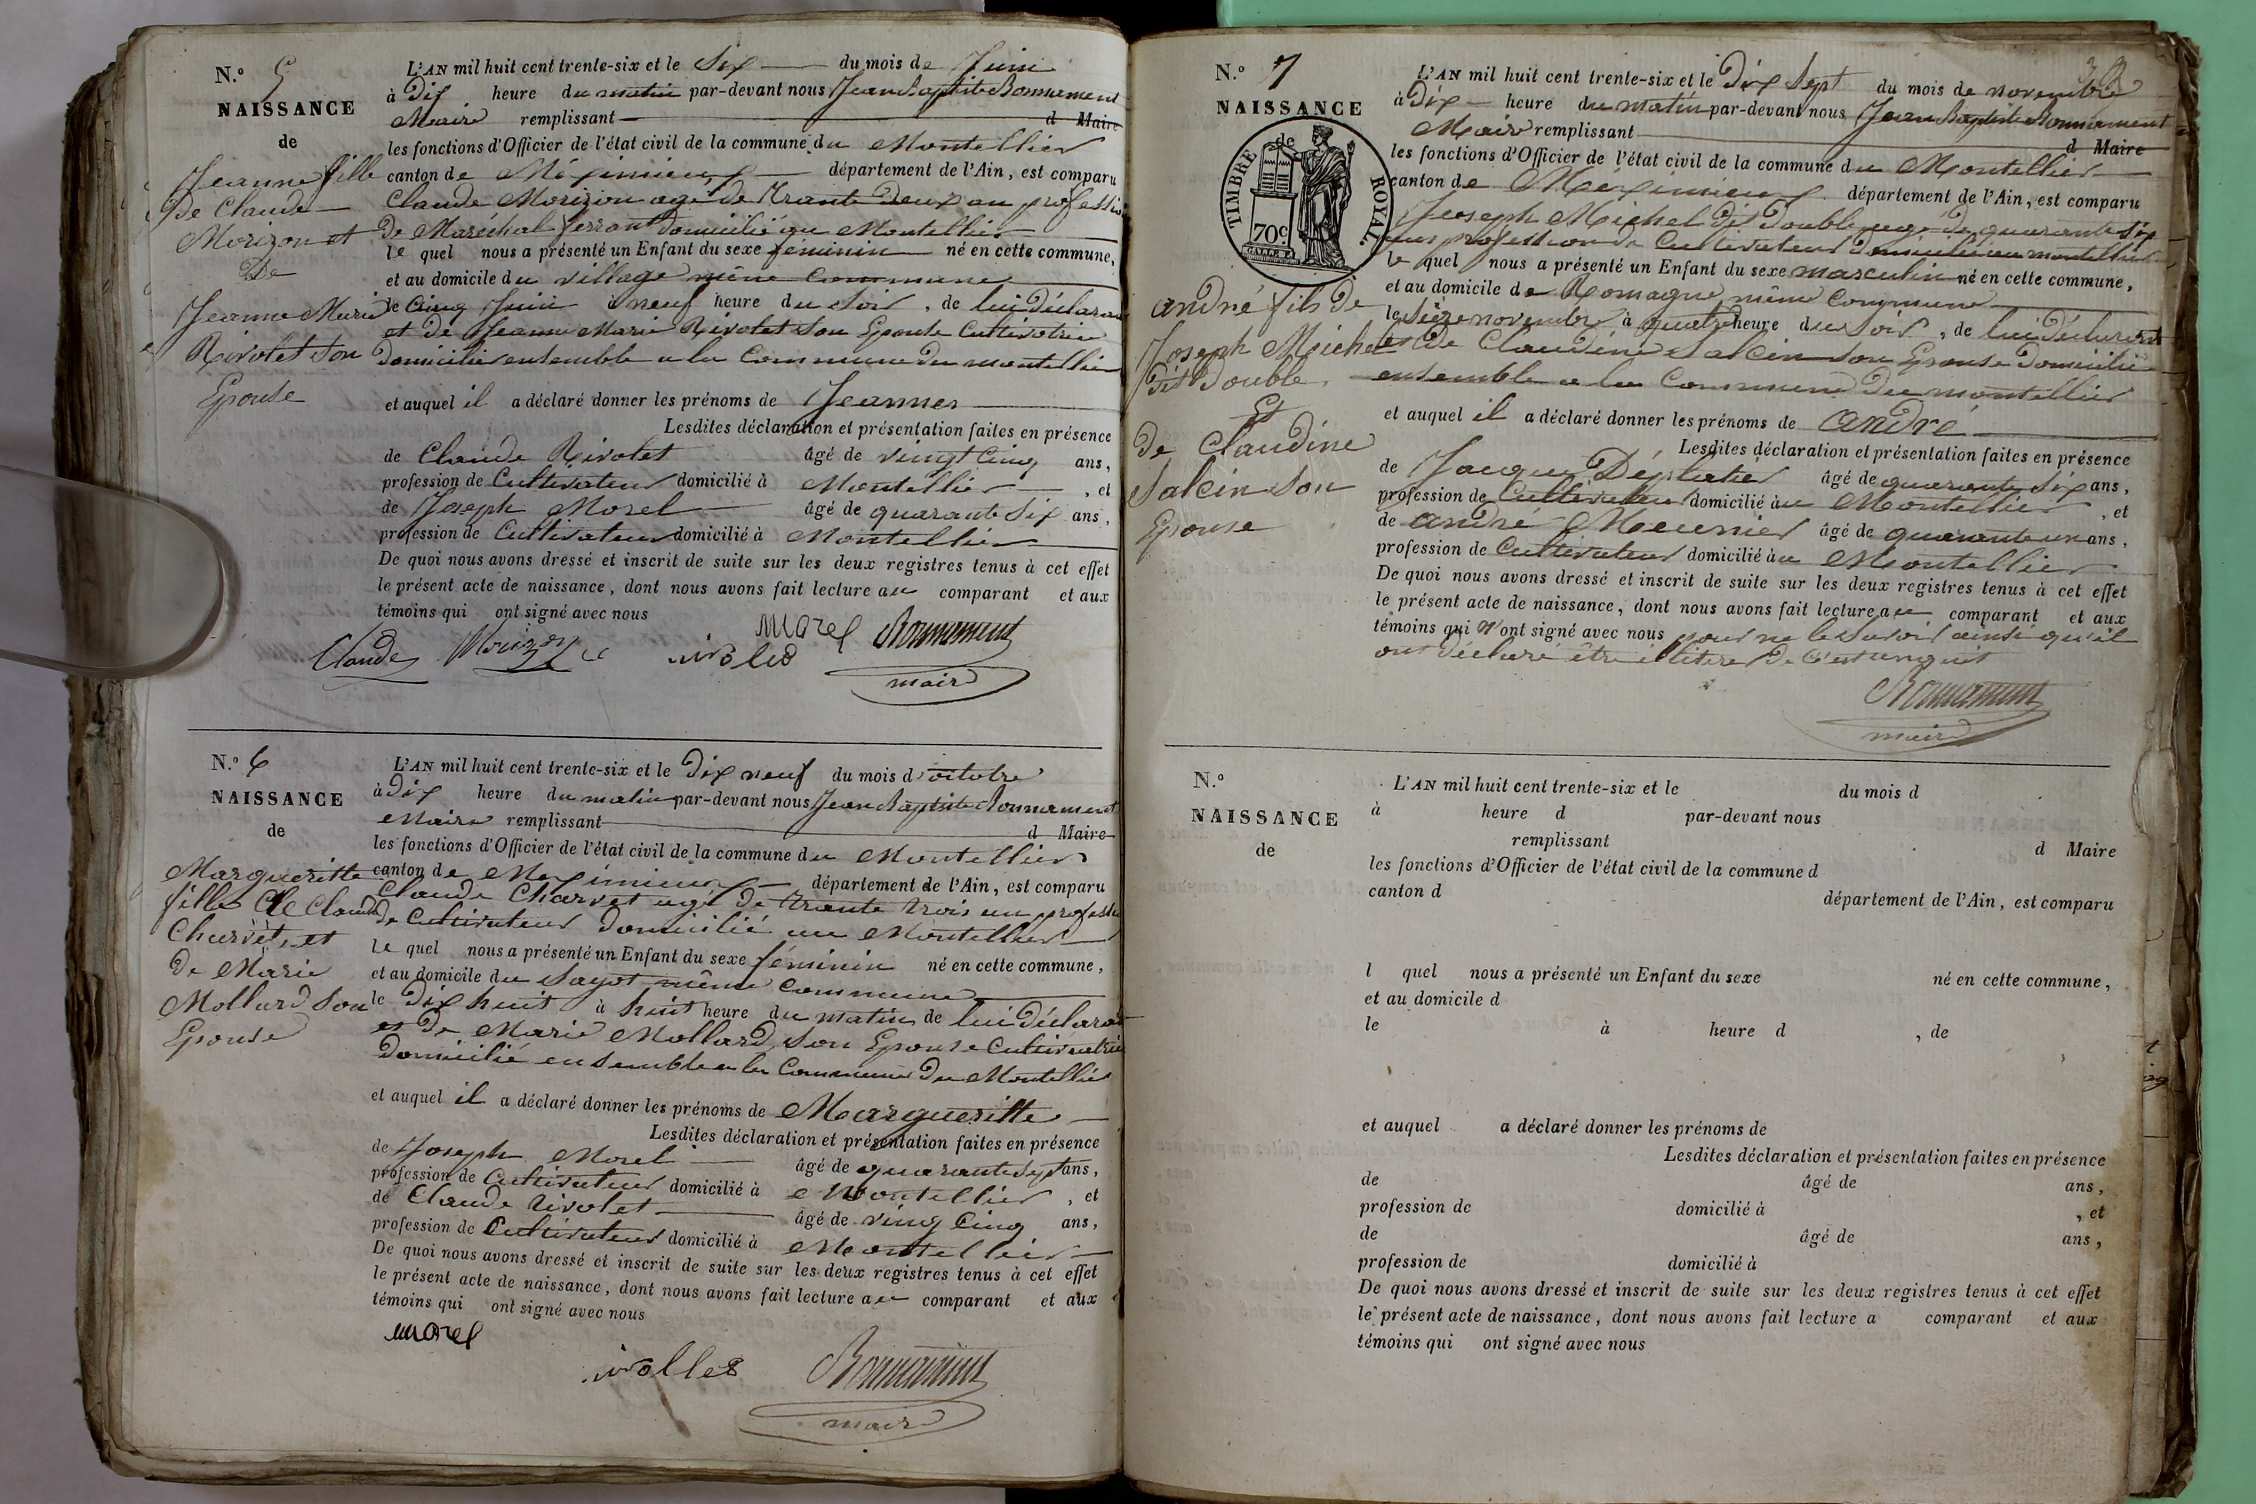 N.º 5
NAISSANCE
de
Jeanne fille
de Claude
Morizon et
De
Jeanne Marie
Rivolet Son
Epouse
L'AN mil huit cent trente-six et le Six du mois de Juin
à Dix heure du matin par-devant nous Jean Baptiste Bonnament
Maire remplissant d Maire
les fonctions d'Officier de l'état civil de la commune du Montellier
canton de Méximieux département de l'Ain, est comparu
Claude Morizon agé de Trante Deux an professio
de Maréchal ferrant domicilié au Montellier
le quel nous a présenté un Enfant du sexe féminin né en cette commune,
et au domicile du village même commune
le Cinq Juin à neuf heure du Soir, de lui Déclarant
et de Jeanne Marie Rivolet Son Epouse Cultivatrice
Domicilié ensemble a la Commune du montellier
et auquel il a déclaré donner les prénoms de Jeanne
Lesdites déclaration et présentation faites en présence
de Claude Rivolet âgé de vingt Cinq ans,
profession de Cultivateur domicilié à Montellier, et
de Joseph Morel âgé de quarante Six ans,
profession de Cultivateur domicilié à Montellier
De quoi nous avons dressé et inscrit de suite sur les deux registres tenus à cet effet
le présent acte de naissance, dont nous avons fait lecture au comparant et aux
témoins qui ont signé avec nous
Claude Morizon morel Bonnament
maire
N.º 6
NAISSANCE
de
Margueritte
fille De Claude
Charvet, et
de Marie
Mollard Son
Epouse
L'AN mil huit cent trente-six et le Dix neuf du mois d'octobre
à Dix heure du matin par-devant nous Jean Baptiste Bonnament
Maire remplissant d Maire
les fonctions d'Officier de l'état civil de la commune du Montellier
canton de Meximieux département de l'Ain, est comparu
Claude Charvet agé de Trante trois an professio
de Cultivateur domicilié au Montellier
le quel nous a présenté un Enfant du sexe féminin né en cette commune,
et au domicile du Sayot même Commune
le Dix huit à huit heure du matin de lui Déclarant
et De Marie Mollard Son Epouse Cultivatrice
Domicilié ensemble a la Commune Du Montellier
et auquel il a déclaré donner les prénoms de Margueritte
Lesdites déclaration et présentation faites en présence
de Joseph Morel âgé de quarante Sept ans,
profession de Cultivateur domicilié à Montellier, et
de Claude Rivolet âgé de vingt Cinq ans,
profession de Cultivateur domicilié à Montellier
De quoi nous avons dressé et inscrit de suite sur les deux registres tenus à cet effet
le présent acte de naissance, dont nous avons fait lecture au comparant et aux
témoins qui ont signé avec nous
morel
Bonnament
maire
N.º 7
NAISSANCE
de
TIMBRE ROYAL.
70c
andré fils de
Joseph Michel
dit Double.
Et
de Claudine
Salcin Son
Epouse
L'AN mil huit cent trente-six et le Dix Sept du mois de novembre
à Dix heure du matin par-devant nous Jean Baptiste Bonnament
Maire remplissant d Maire
les fonctions d'Officier de l'état civil de la commune du Montellier
canton de Méximieux département de l'Ain, est comparu
Joseph Michel dit Double agé de quarante Six
ans profession de Cultivateur domicilié au montellier
le quel nous a présenté un Enfant du sexe masculin né en cette commune,
et au domicile de Romagne même Commune
le Seize novembre à quatre heure du Soir, de lui Déclarant
et De Claudine Salcin Son Epouse Domicilié
ensemble a la Commune Du montellier
et auquel il a déclaré donner les prénoms de andré
Lesdites déclaration et présentation faites en présence
de Jacques âgé de quarante Six ans,
profession de Cultivateur domicilié au Montellier, et
de andré Meunier âgé de quarante un ans,
profession de Cultivateur domicilié au Montellier
De quoi nous avons dressé et inscrit de suite sur les deux registres tenus à cet effet
le présent acte de naissance, dont nous avons fait lecture au comparant et aux
témoins qui n'ont signé avec nous pour ne le Savoir ainsi qu'il
ont Déclaré être illitéré De ce
Bonnament
maire
N.º
NAISSANCE
de
L'AN mil huit cent trente-six et le du mois d
à heure d par-devant nous
remplissant d Maire
les fonctions d'Officier de l'état civil de la commune d
canton d département de l'Ain, est comparu
l quel nous a présenté un Enfant du sexe né en cette commune,
et au domicile d
le à heure d , de
et auquel a déclaré donner les prénoms de
Lesdites déclaration et présentation faites en présence
de âgé de ans,
profession de domicilié à , et
de âgé de ans,
profession de domicilié à
De quoi nous avons dressé et inscrit de suite sur les deux registres tenus à cet effet
le présent acte de naissance, dont nous avons fait lecture a comparant et aux
témoins qui ont signé avec nous